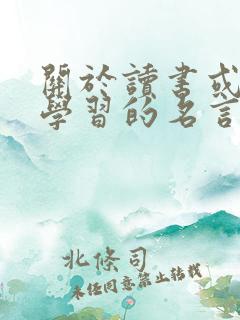 關於讀書或
學習的名言
北條司
未經同意禁止轉載